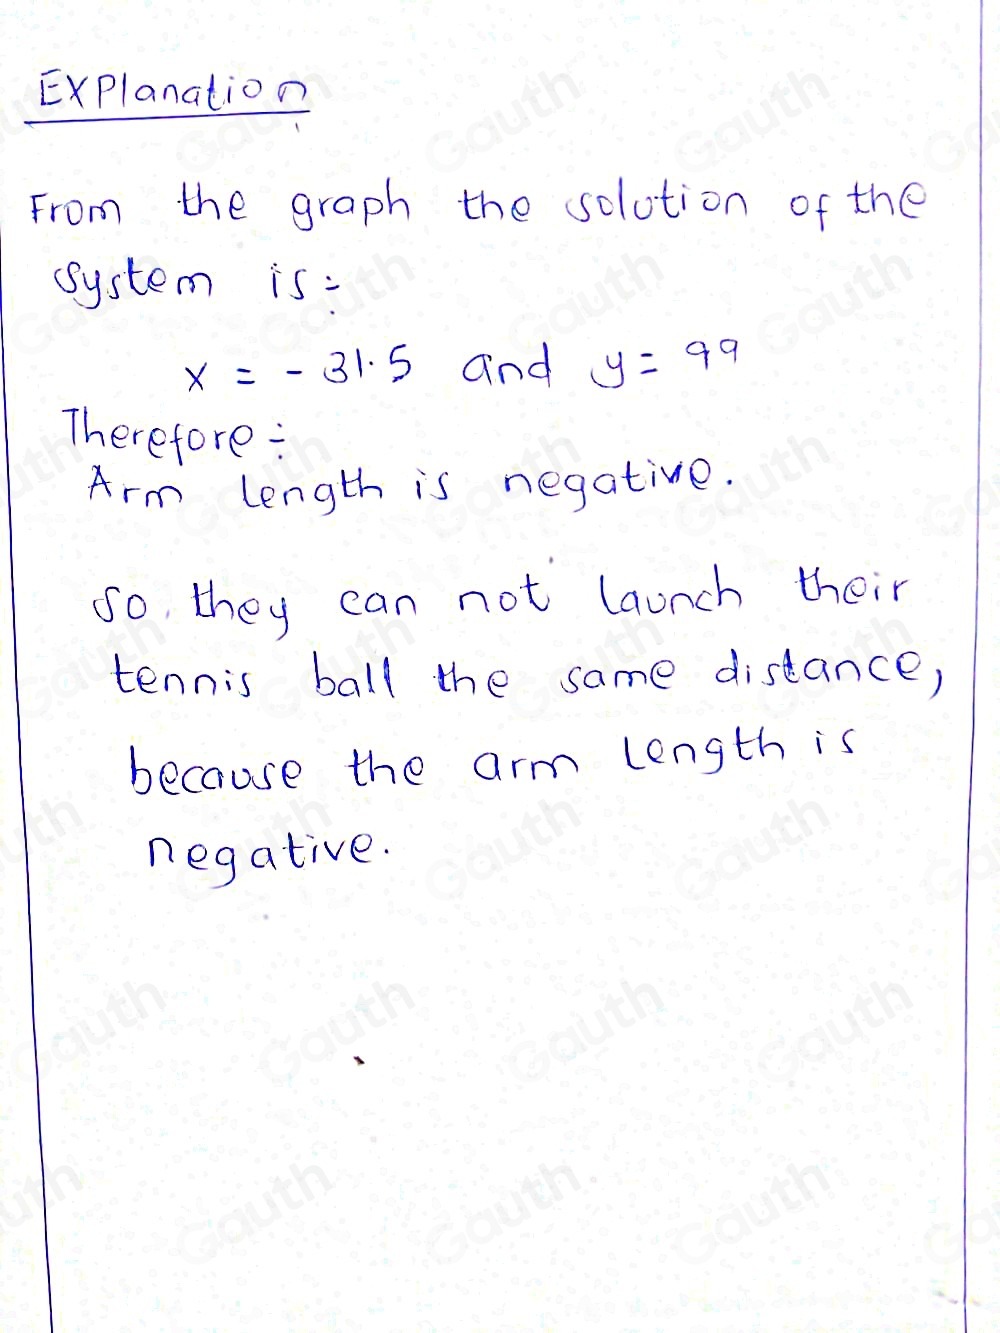 Explanation
From the graph the solution of the
system is:
x = - 31.5 and y = 99
Therefore ÷
Arm length is negative.
So, they can not launch their
tennis ball the same distance,
because the arm length is
negative.